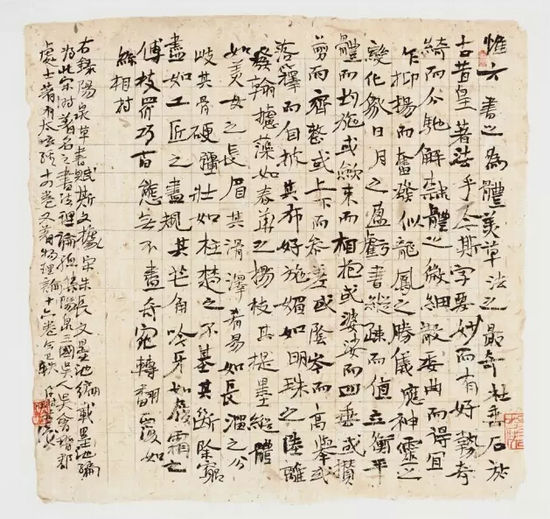 惟六書之為體美草法之最奇杜垂名於
古昔皇著法乎今斯字要妙而有好勢奇
綺而分馳解隸體之微細散委曲而得宜
乍抑揚而奮發似龍鳳之騰儀應神靈之
變化象日月之盈虧書縱疎而值立衡平
體而均施或斂束而相抱或婆娑而四垂或攢
剪而齊整或上下而參差或陰岑而高舉或
落籜而自披其布好施媚如明珠之陸離
發翰攄藻如春華之楊枝其提墨縱體
如美女之長眉其滑澤肴易如長溜之分
歧其骨硬彊壯如柱礎之不基其斷除窮
盡如工匠之盡規其芒角吟牙如嚴霜之
傅枝眾巧百態無不盡奇宛轉翻覆如
絲相持
右錄陽泉草書賦斯文據宋朱長文墨池編載墨池編
為北宋時著名之書法理論陽泉三國吳人吳會稽郡
處士著有太玄經十四卷又著物理論十六卷今已軼